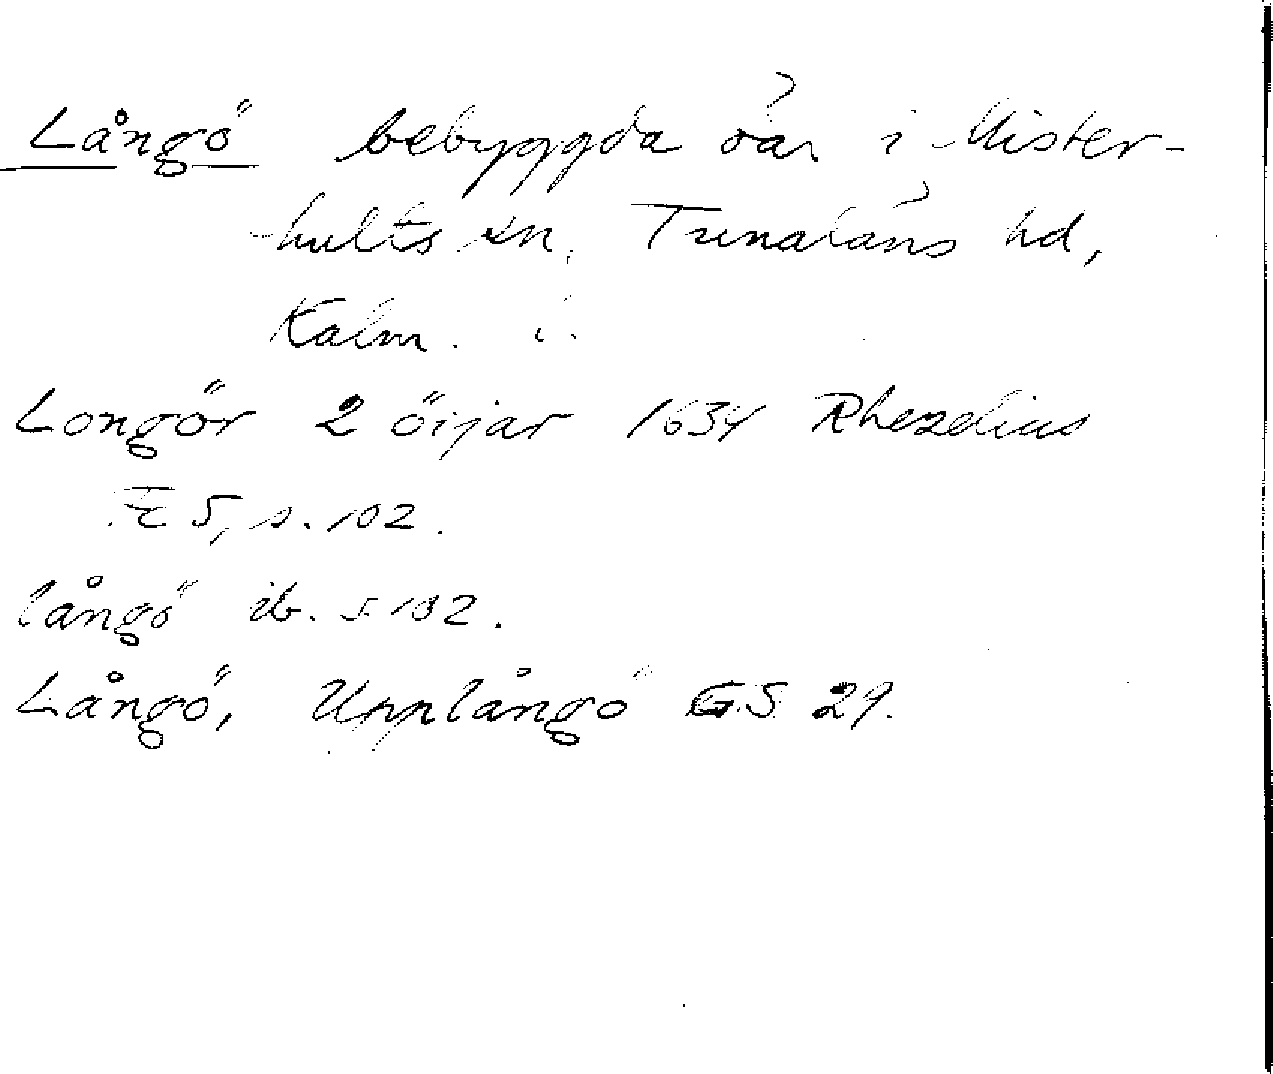 Långö bebyggda öar i Mister-
-hults sn, Tunaläns hd,
Kalm. l.
Longör 2 öijar 1634 Rhezelius
F c 5, s. 102.
långö ib. s 102.
Långö, Upplångö G.S. 29.